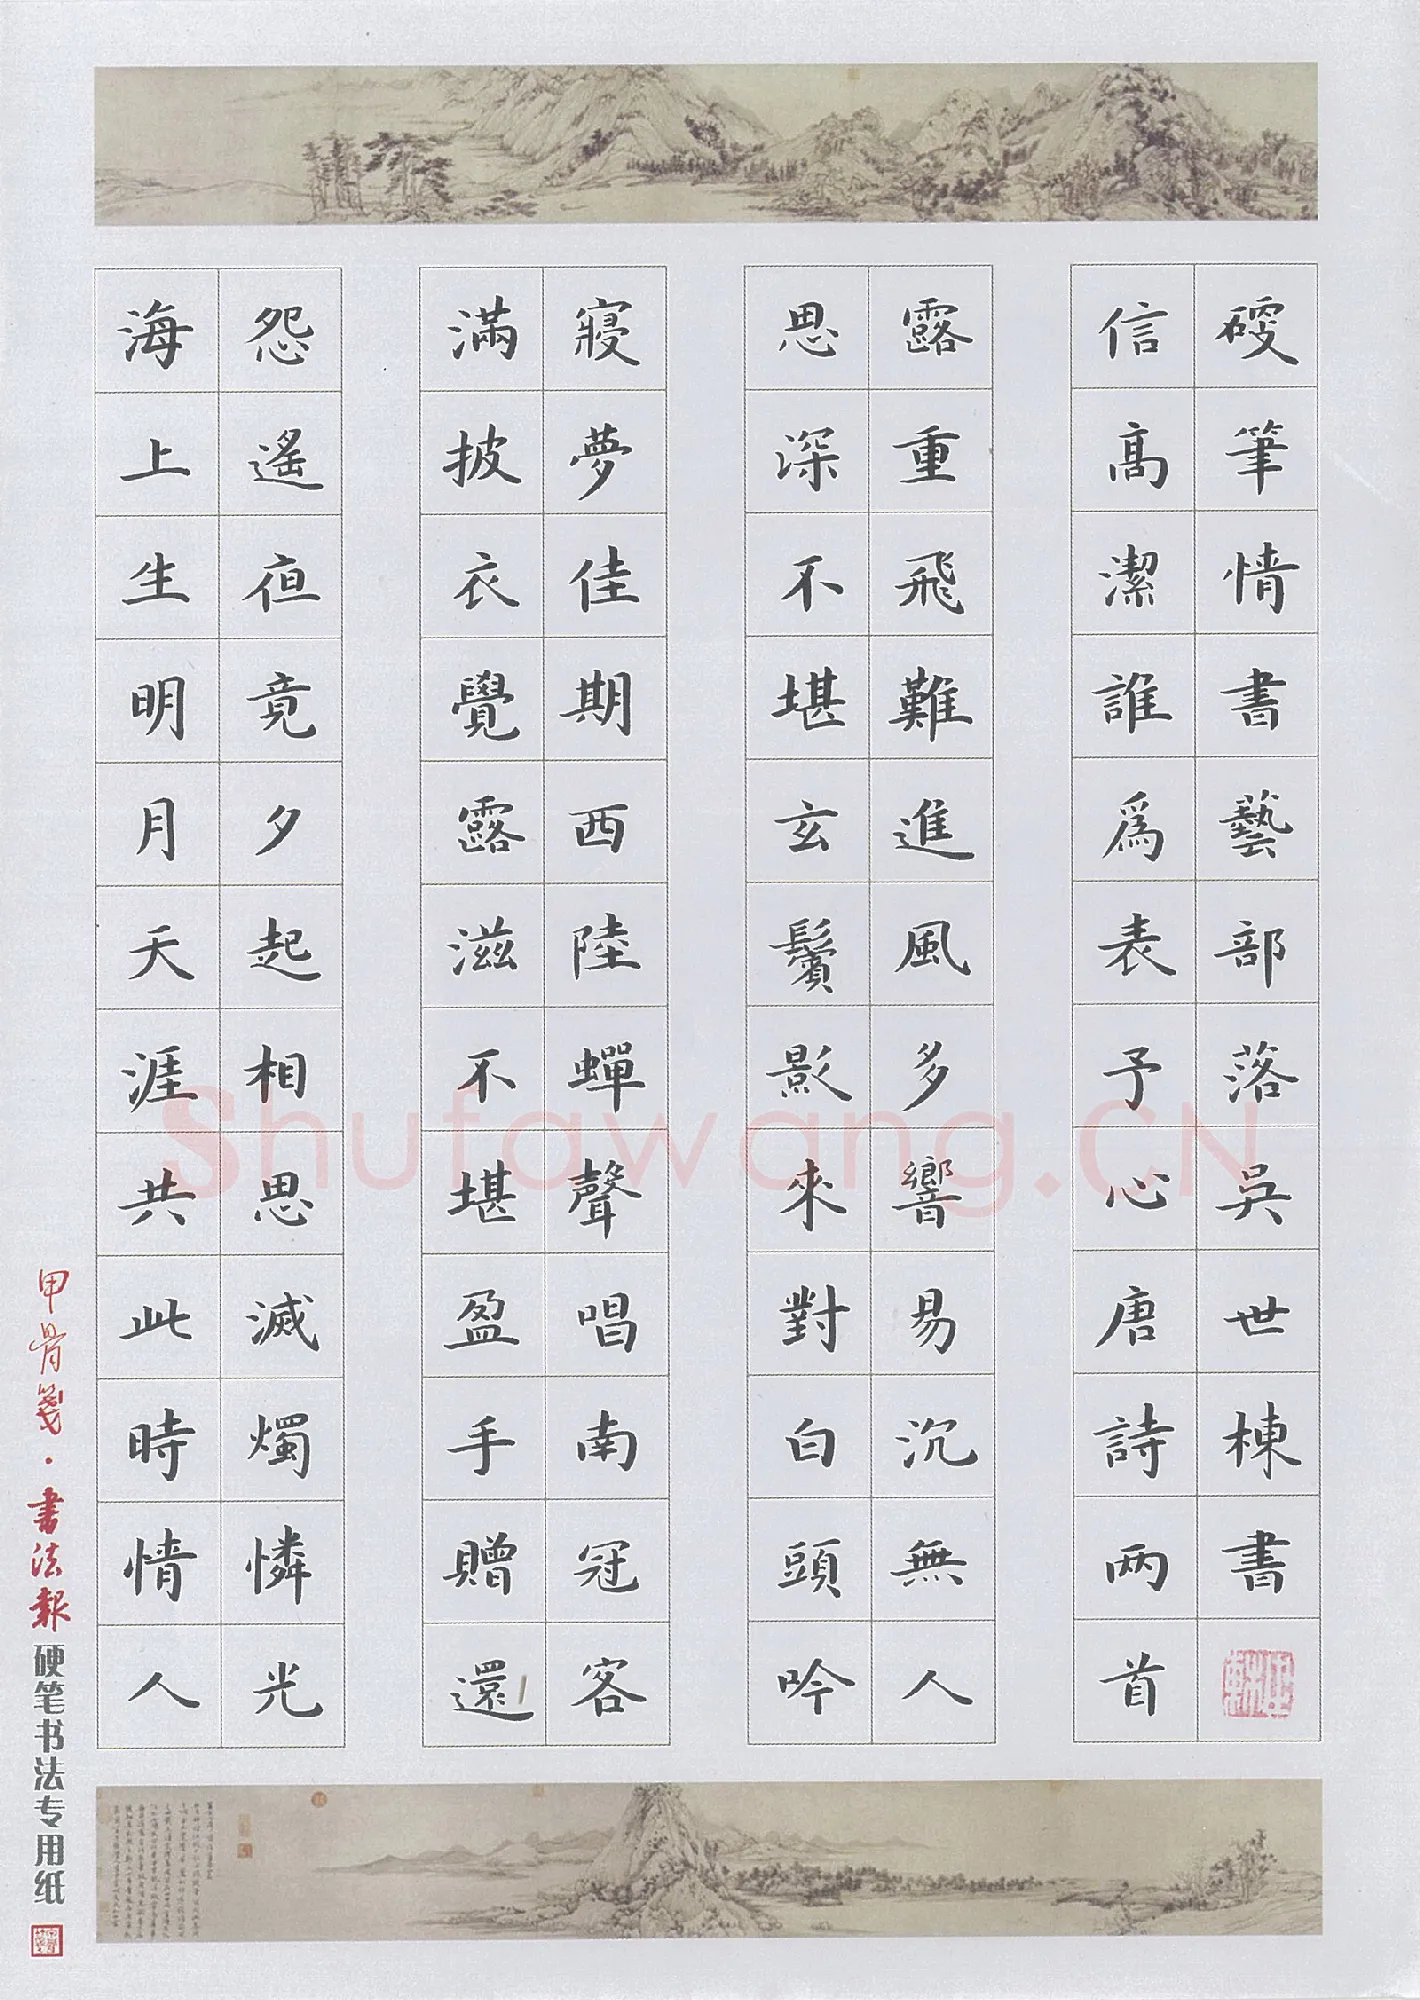 海上生明月天涯共此時情人
怨遙亱竟夕起相思滅燭憐光
滿披衣覺露滋不堪盈手贈還
寢夢佳期西陸蟬聲唱南冠客
思深不堪玄鬢影來對白頭吟
露重飛難進風多響易沉無人
信髙潔誰爲表予心唐詩两首
硬筆情書藝部落吳世棟書
甲骨箋·書法報硬笔书法专用纸
Shufawang.CN